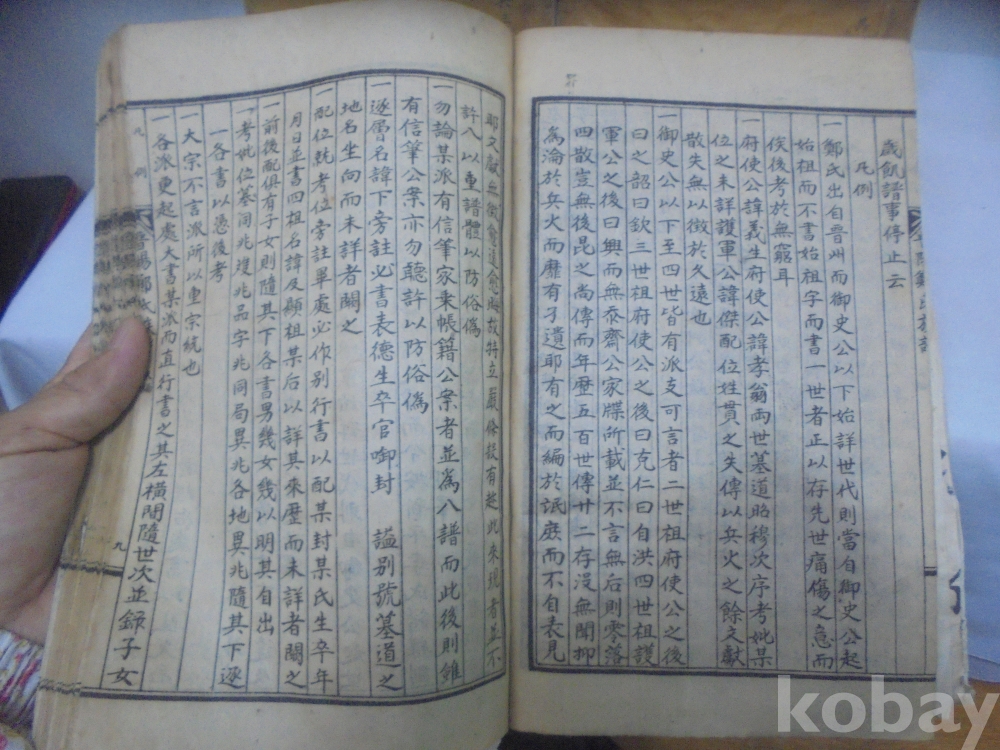 歲飢譜事停止云
凡例
一鄭氏出自晉州而御史公以下始詳世代則當自御史公起
始祖而不書始祖字而書一世者正以存先世痛傷之意而
俟後考於無窮耳
一府使公諱義生府使公諱孝翁兩世墓道昭穆次序考妣某
位之未詳護軍公諱傑配位姓貫之失傳以兵火之餘文獻
散失無以徵於久遠也
一御史公以下至四世皆有派支可言者二世祖府使公之後
曰之韶曰欽三世祖府使公之後曰克仁曰自洪四世祖護
軍公之後曰興而無忝齋公家牒所載並不言無后則零落
四散豈無後昆之尚傳而年歷五百世傳廿二存没無聞抑
為淪於兵火而靡有孑遺耶有之而編於氓庶而不自表見
耶文獻無徵愈遠愈晦故特立嚴條設有起此來現者並不
許入以重譜體以防俗偽
一勿論某派有信筆家乘帳籍公案者並為入譜而此後則雖
有信筆公案亦勿聽許以防俗偽
一逐層名諱下旁註必書表德生卒官啣封 謚別號墓道之
地名坐向而未詳者闕之
一配位就考位旁註單處必作別行書以配某封某氏生卒年
月日並書四祖名諱及顯祖某后以詳其來歷而未詳者闕之
一前後配俱有子女則隨其下各書男幾女幾以明其自出
一考妣位墓同兆雙兆品字兆同局異兆各地異兆隨其下逐
一各書以憑後考
一大宗不言派所以重宗統也
一各派更起處大書某派而直行書之其左橫間隨世次並錄子女
凡例
九
kobay